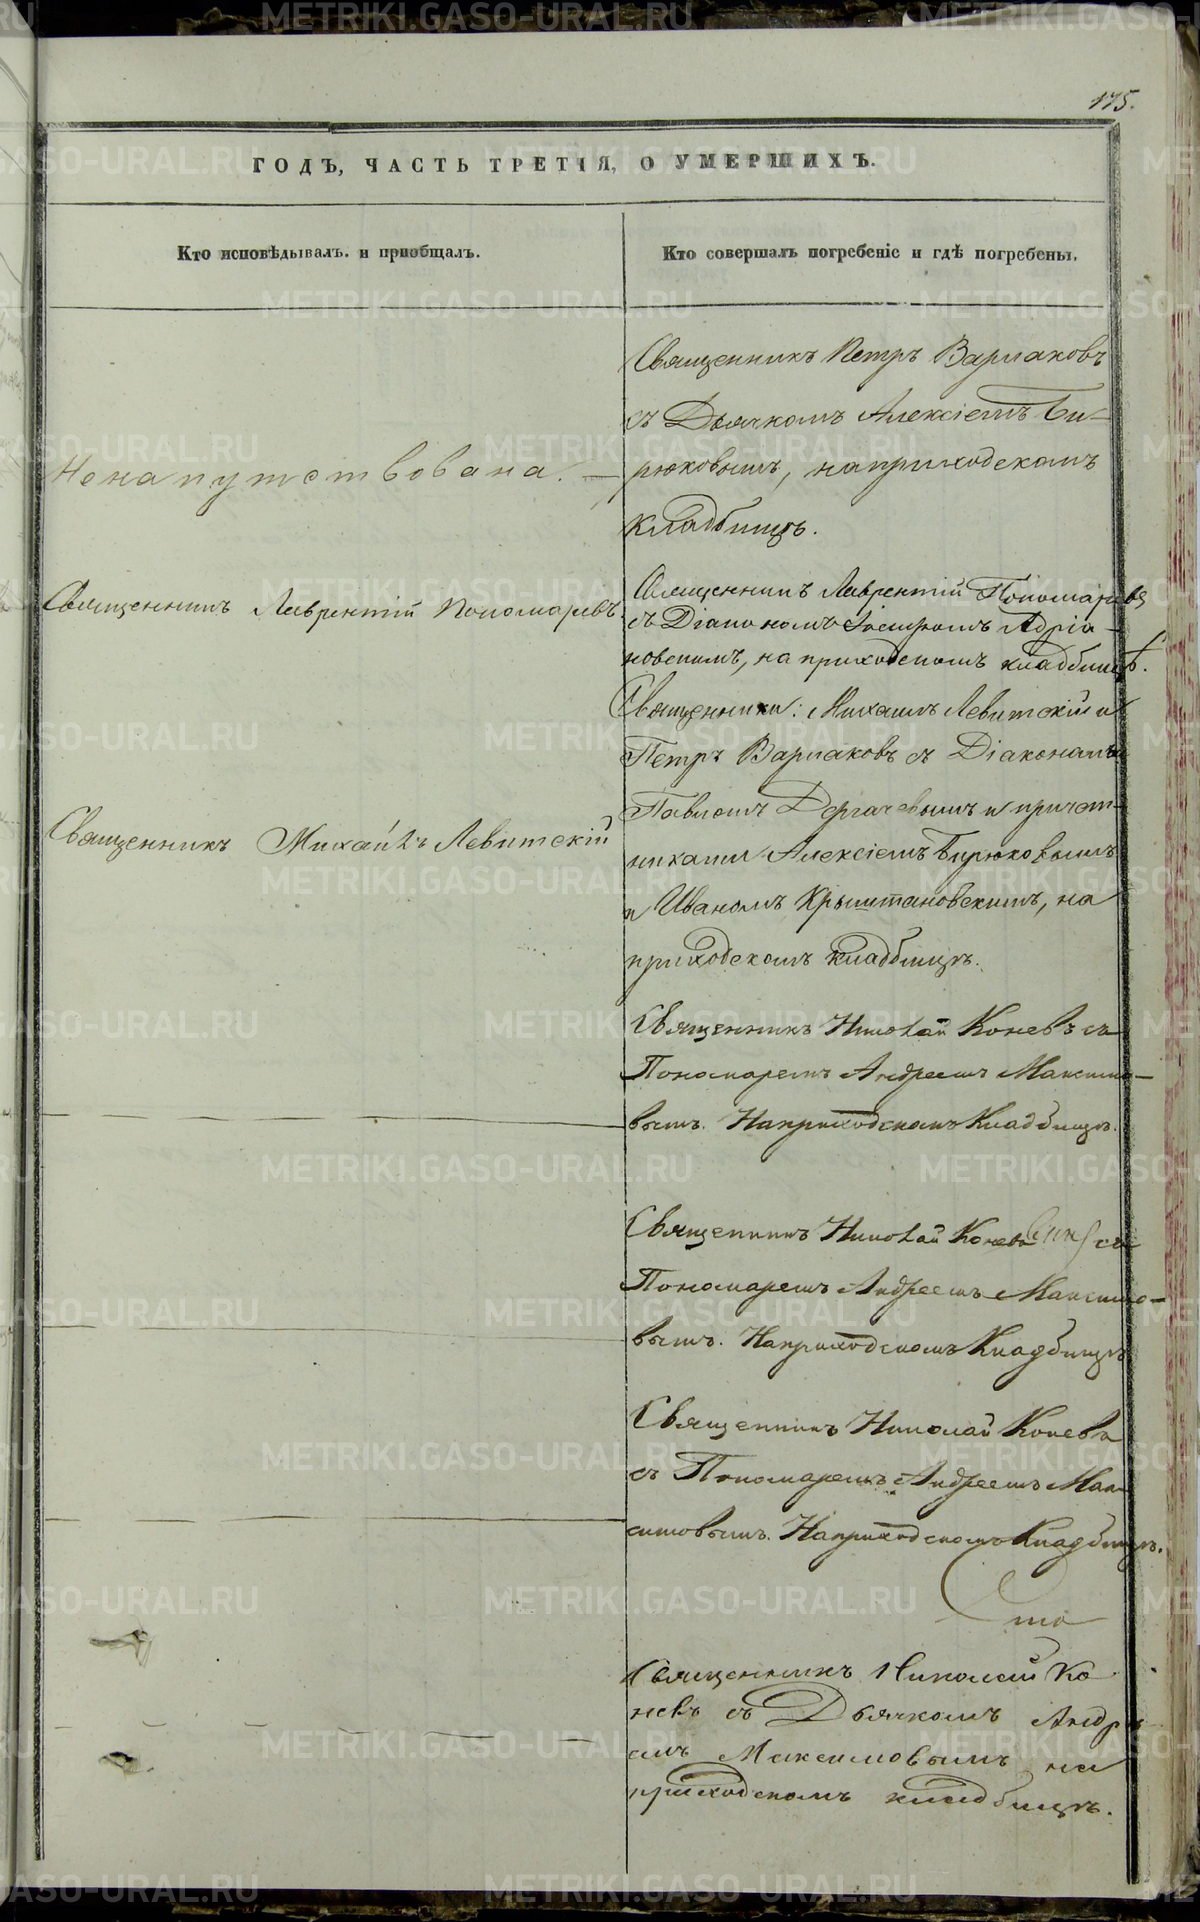 175.
ГОДЪ, ЧАСТЬ ТРЕТІЯ, О УМЕРШИХЪ.
Кто исповѣдывалъ. и приобщалъ.
Кто совершалъ погребеніе и гдѣ погребены.
Священникъ Петръ Варлаковъ
съ Дьячкомъ Алексіемъ Би-
рюковымъ, на приходскомъ
кладбищѣ.
Не напутствована. —
Священникъ Лаврентій Пономаревъ
Священникъ Лаврентій Пономаревъ
съ Діакономъ Іосифомъ Адріа-
новскимъ, на приходскомъ кладбищѣ.
Священники: Михаилъ Левитскій и
Петръ Варлаковъ съ Діакономъ
Павломъ Дергачевымъ и причет-
никами Алексіемъ Бирюковымъ
и Иваномъ Крыштановскимъ, на
приходскомъ кладбищѣ.
Священникъ Михаилъ Левитскій
Священникъ Николай Коневъ съ
Пономаремъ Андреемъ Максимо-
вымъ. На приходскомъ Кладбищѣ.
Священникъ Николай Коневъ съ
Пономаремъ Андреемъ Максимо-
вымъ. На приходскомъ Кладбищѣ
Священникъ Николай Коневъ
съ Пономаремъ Андреемъ Мак-
симовымъ. На приходскомъ Кладбищѣ.
Священникъ Николай Ко
невъ съ Дьячкомъ Андре
емъ Максимовымъ на
приходскомъ кладбищѣ.
METRIKI.GASO-URAL.RU